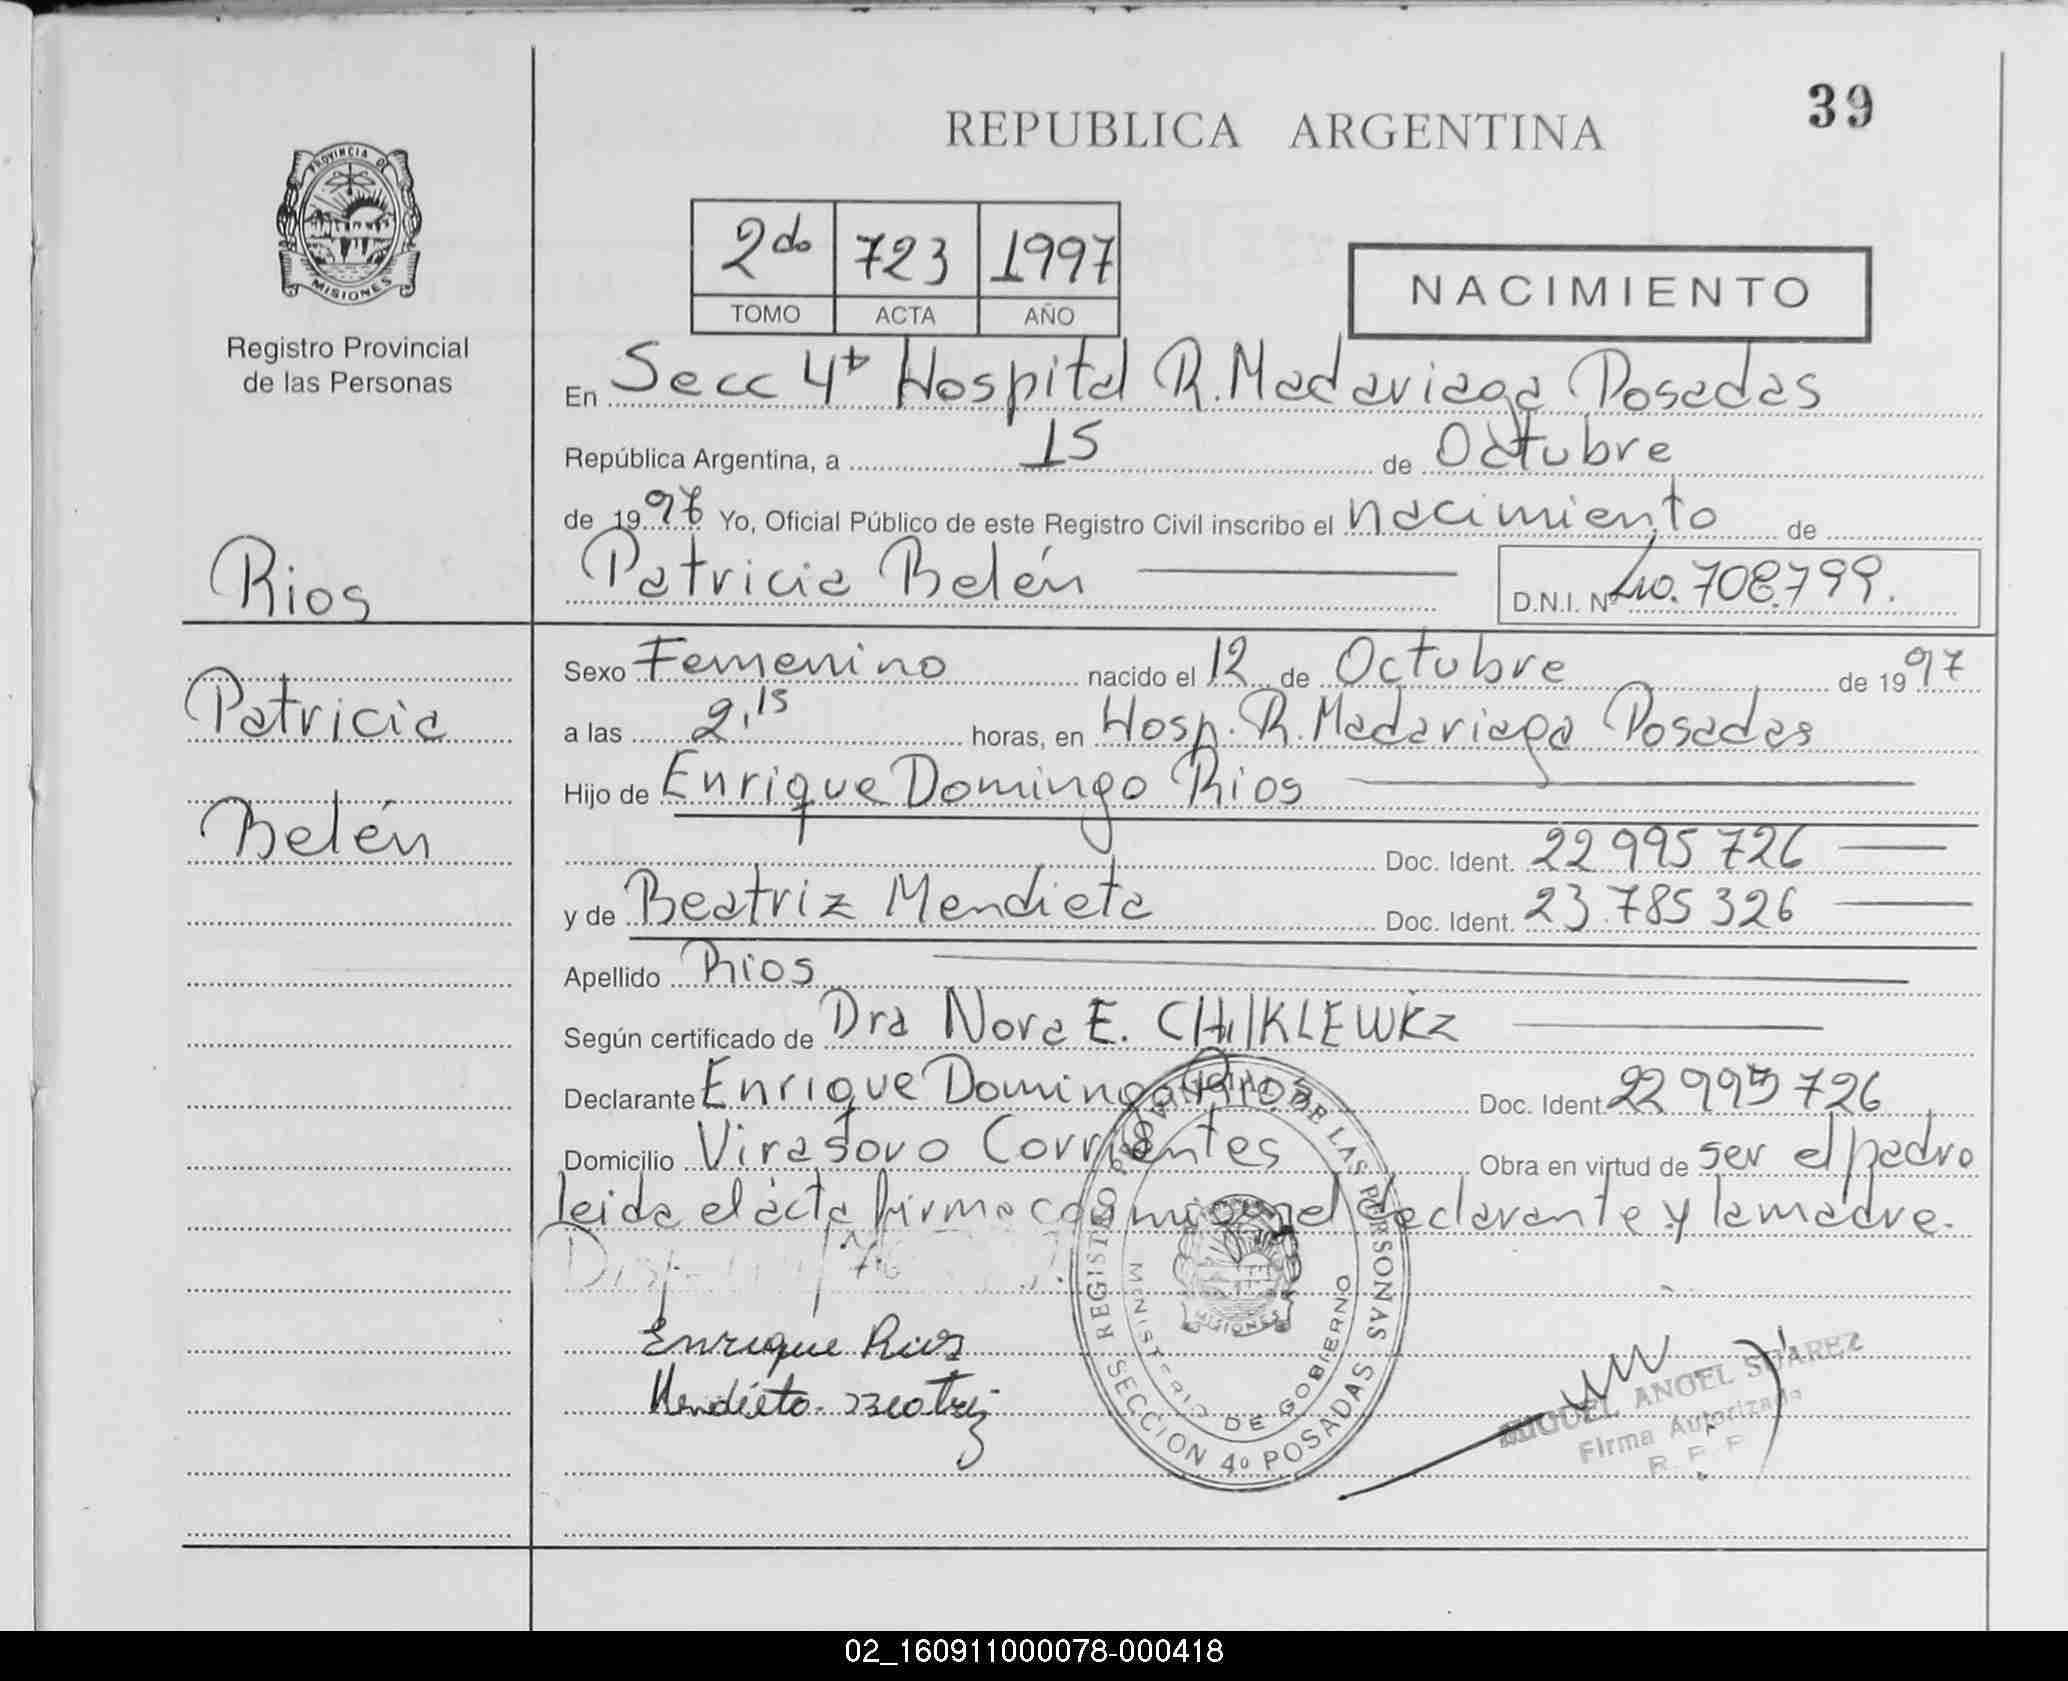 39
REPUBLICA ARGENTINA
PROVINCIA DE
MISIONES
Registro Provincial
de las Personas
2do 723 1997
TOMO ACTA AÑO
NACIMIENTO
En Secc 4ta Hospital R. Madariaga Posadas
República Argentina, a 15 de Octubre
de 1997 Yo, Oficial Público de este Registro Civil inscribo el nacimiento de
Rios
Patricia Belén D.N.I. Nº 40.708.799.
Sexo Femenino nacido el 12 de Octubre de 1997
Patricia
a las 2,15 horas, en Hosp. R. Madariaga Posadas
Hijo de Enrique Domingo Rios
Belén
Doc. Ident. 22 995 726
y de Beatriz Mendieta Doc. Ident. 23.785 326
Apellido Rios
Según certificado de Dra Nora E. CHIKLEWKZ
Declarante Enrique Domingo Rios Doc. Ident 22 995 726
Domicilio Virasoro Corrientes Obra en virtud de ser el padre
leida el acta firma conmigo el declarante y la madre.
Enrique Rios
Mendieta Beatriz
REGISTRO PROVINCIAL DE LAS PERSONAS
MINISTERIO DE GOBIERNO
MISIONES
SECCION 4º POSADAS
MIGUEL ANGEL SUAREZ
Firma Autorizada
R. P. P.
02_160911000078-000418